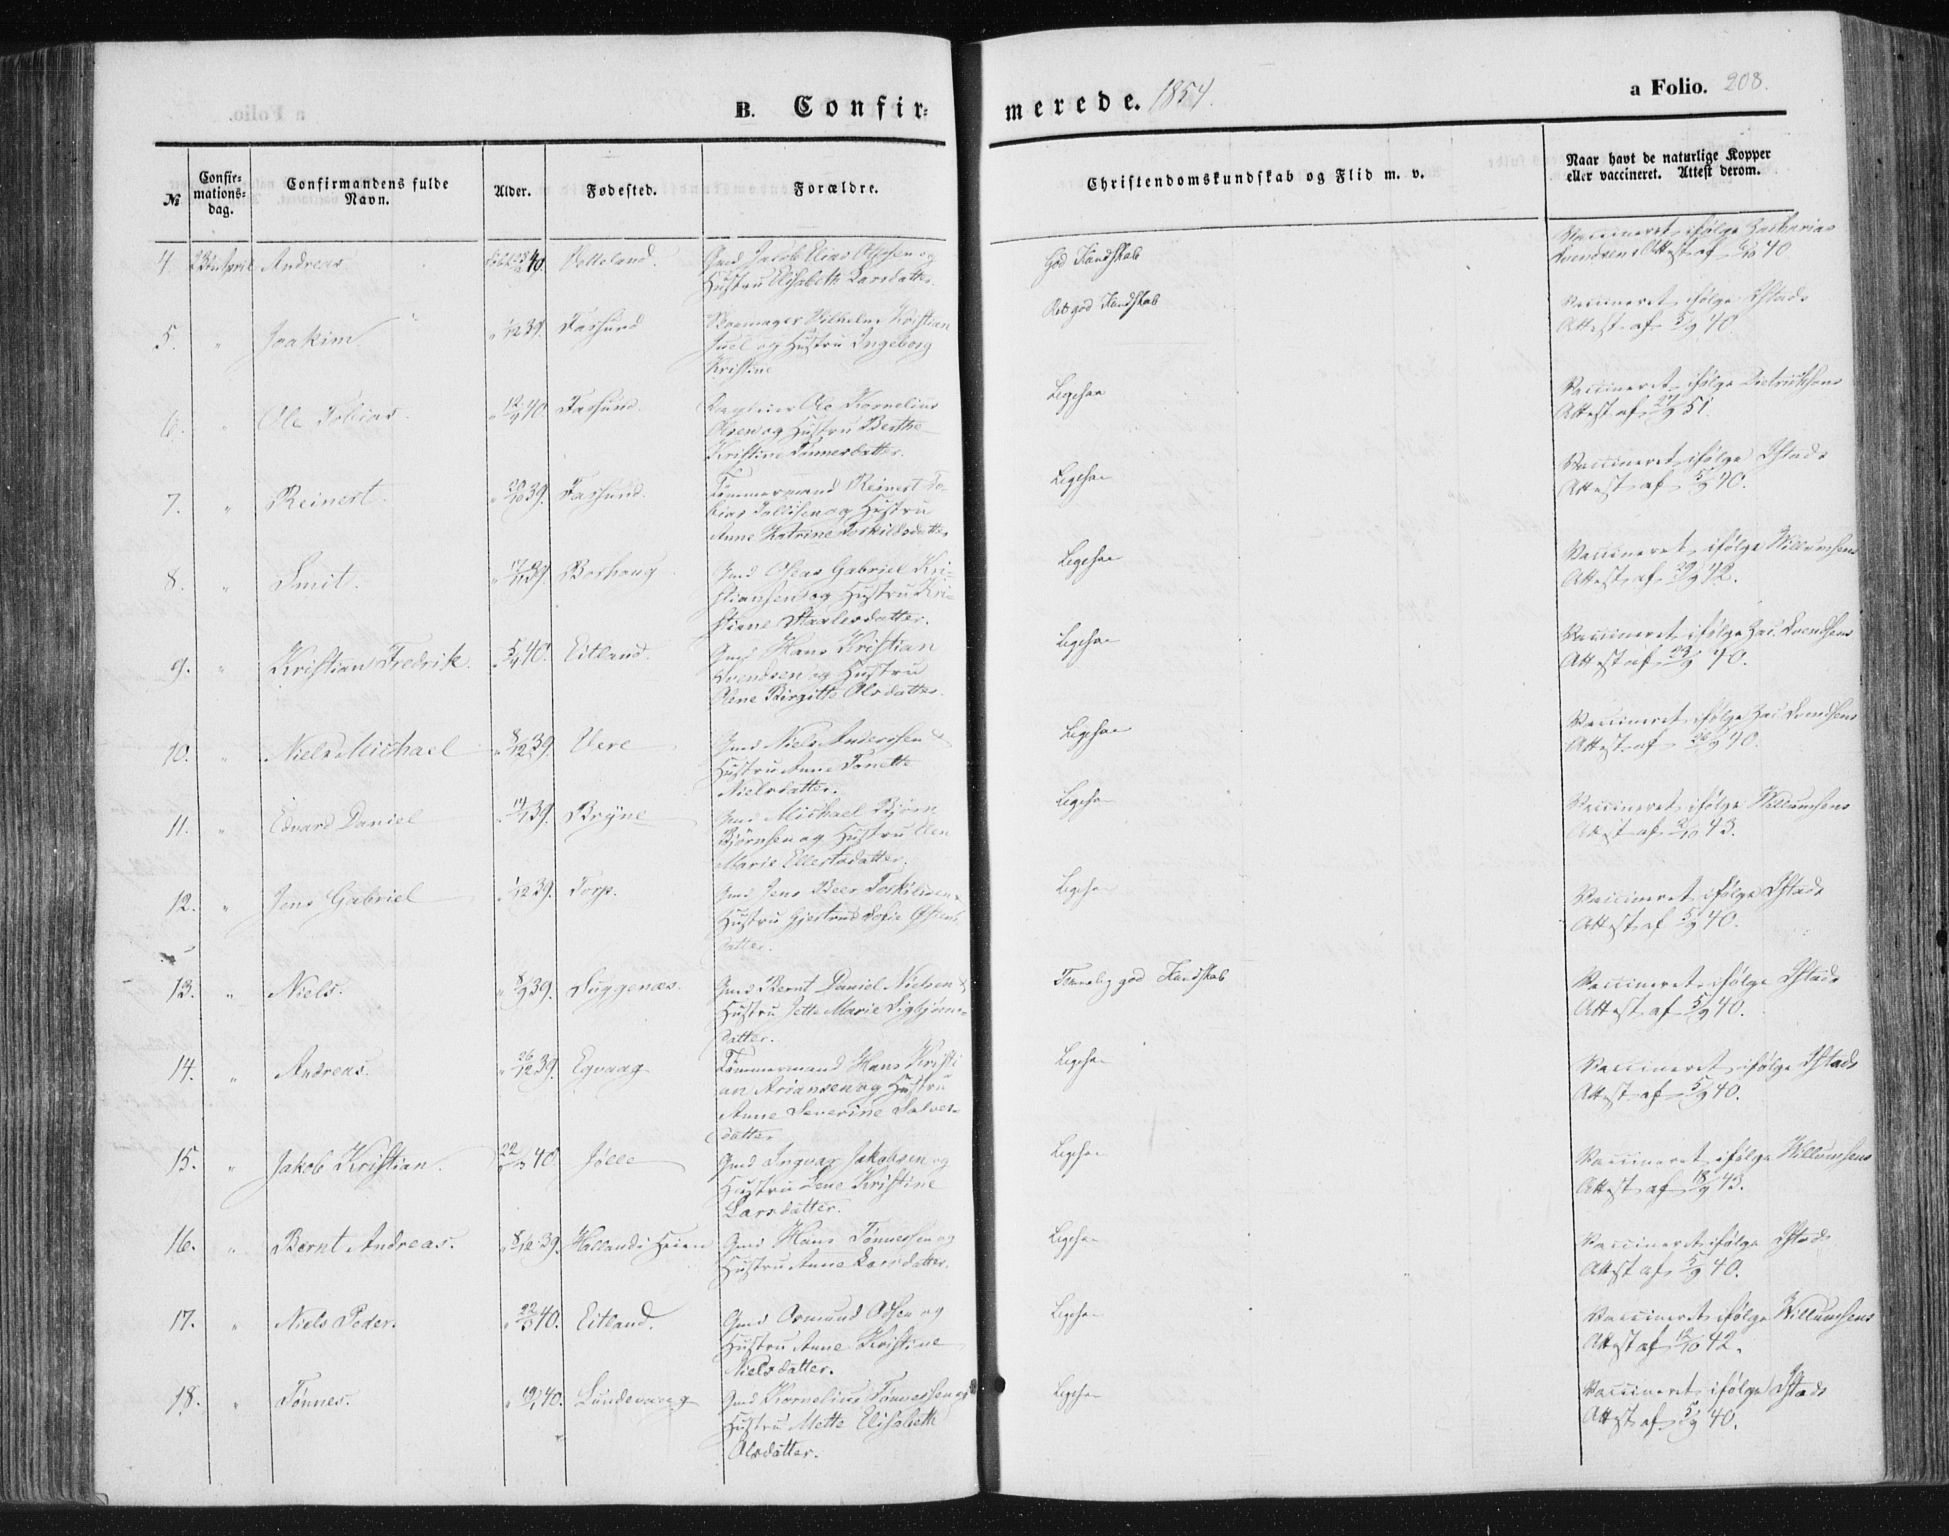 a Folio. 208.
B. Confir=
merede. 1854.
№
Confir=
mations=
dag.
Confirmandens fulde
Navn.
Alder.
Fødested.
Forældre.
Christendomskundskab og Flid m. v.
Naar havt de naturlige Kopper
eller vaccineret. Attest derom.
4. Andreas 40. Gmd Jacob Elias og
Hustru Elisabeth Larsdatter.
God Kundskab
Vaccineret ifølge Zacharias
Svendsens Attest af 40
5. " Joakim. " 39. Farsund Skomager Vilhelm Kristian
Juel og Hustru Ingeborg
Kristine
god Kundskab
Vaccineret ifølge Ystads
Attest af 5/9 40.
6. " Ole Tobias. " 40. Farsund. Ole Kornelius
Olsen og Hustru Berthe
Kristine Tønnesdatter.
Ligesaa
Vaccineret ifølge Dietrichsons
Attest af 27/9 51.
7. " Reinert. " 39. Farsund. Tømmermand Reinert To-
bias og Hustru
Anne Katrine Torkildsdatter
Ligesaa
Vaccineret ifølge Ystads
Attest af 5/9 40.
8. " Smit. " 39. Borhaug Gmd Gabriel Kri-
stiansen og Hustru Kri-
stiane
Ligesaa
Vaccineret ifølge Willumsens
Attest af 42.
9. " Kristian Fredrik. " 40. Eitland. Gmd Hans Kristian
Svendsen og Hustru
Olene Birgitte Olsdatter.
Ligesaa
Vaccineret ifølge Zac. Svendsens
Attest af 40.
10. " Niels Michael " 8/12 39. Vere Gmd Niels Andersen &
Hustru Anne Tonette
Nielsdatter.
Ligesaa
Vaccineret ifølge Zac. Svendsens
Attest af 40.
11. " Edvard Daniel " 39. Bryne Gmd Michael Bjørn
Bjørnsen og Hustru Elen
Marie Ellertsdatter.
Ligesaa
Vaccineret ifølge Willumsens
Attest af 43.
12. " Jens Gabriel " 39. Torp. Gmd Jens Beer Torkildsen &
Hustru Gjertrud Sofie
datter.
Ligesaa
Vaccineret ifølge Ystads
Attest af 5/9 40.
13. " Niels. " 39. Suggenæs. Gmd Bernt Daniel Nielsen &
Hustru Jette Marie Sigbjørns-
datter.
Temmelig god Kundskab
Vaccineret ifølge Ystads
Attest af 5/9 40.
14. " Andreas. " 26/12 39. Egvaag Tømmermand Hans Kristi
an Ariansen og Hustru
Anne Severine Salves-
datter
Ligesaa
Vaccineret ifølge Ystads
Attest af 5/9 40.
15. " Jakob Kristian. 40. Jølle Gmd Ingvar Jakobsen og
Hustru Lene Kristine
Larsdatter.
Ligesaa
Vaccineret ifølge Willumsens
Attest af 18/9 43.
16. " Bernt Andreas. " 8/12 39. Hallands Heien Gmd Hans Tønnessen og
Hustru Anne Larsdatter.
Ligesaa
Vaccineret ifølge Ystads
Attest af 5/9 40.
17. " Niels Peder. " 40. Eitland. Gmd Osmund og
Hustru Anne Kristine
Nielsdatter.
Ligesaa
Vaccineret ifølge Willumsens
Attest af 12/10 42.
18. " Tønnes. " 40. Lundevaag Gmd Kornelius Tønnessen og
Hustru Mette Elisabeth
Olsdatter.
Ligesaa
Vaccineret ifølge Ystads
Attest af 5/9 40.